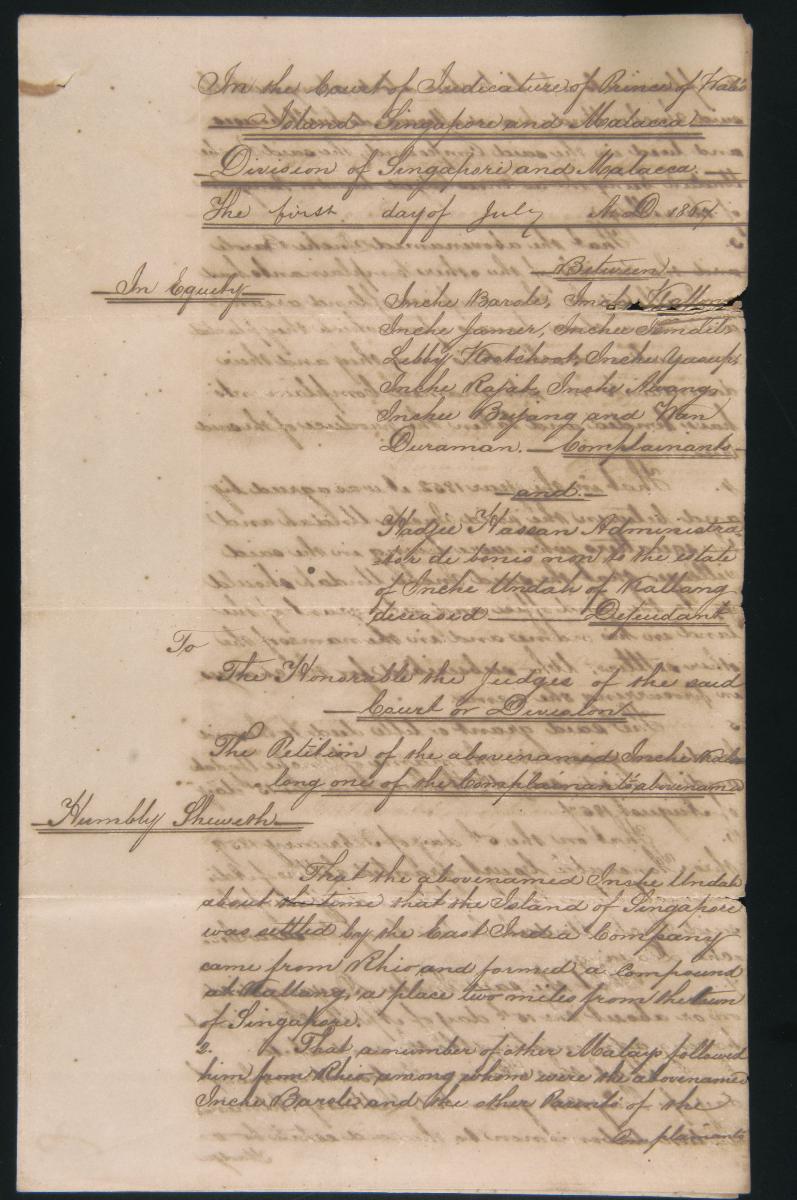 In the Court of Judicature of Prince of Wales
Island Singapore and Malacca
Division of Singapore and Malacca
The first day of July A.D. 1867
Between
In Equity
Inche Barole, Inche
Inche Jamer, Inchee
Lebby Inchee Yacup,
Inche Rajab, Inche Awang,
Inchee Bujang and Wan
Duraman. Complainants
and
Hadjee Hassan Administra
tor de bonis non to the estate
of Inche Undah of Kallang
deceased Defendant
To
The Honorable the Judges of the said
Court or Division
The Petition of the abovenamed Inche
long one of the Complainants abovenamed
Humbly Sheweth
That the abovenamed Inche Undah
about the time that the Island of Singapore
was settled by the East India Company
came from Rhio and formed a Compound
at Kallang, a place two miles from the town
of Singapore.
2. That a number of other Malays followed
him from Rhio among whom were the abovenamed
Inche Barole and the other Parents of the
Complainants